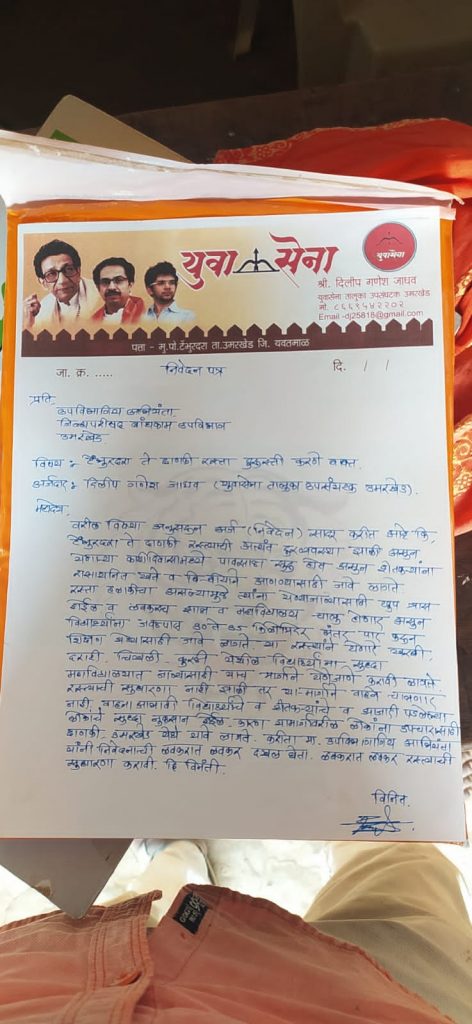 युवा सेना
युवासेना
श्री. दिलीप गणेश जाधव
युवासेना तालुका उपसंघटक उमरखेड
मो. ८६६९५४२२०२
Email -dj25818@gmail.com
पत्ता - मु.पो.टेंभुरदरा ता.उमरखेड जि. यवतमाळ
जा. क्र. ..... निवेदन पत्र दि. / /
प्रति,
उपविभागिय अभियंता
जिल्हा परीषद बांधकाम उपविभाग
उमरखेड
विषय :- टेंभुरदरा ते ढाणकी रस्ता दुरुस्ती करणे बाबत.
अर्जदार :- दिलीप गणेश जाधव (युवासेना तालुका उपसंघटक उमरखेड).
महोदय,
वरील विषया अनुसरून अर्ज (निवेदन) सादर करीत आहे कि,
टेंभुरदरा ते ढाणकी रस्त्याची अत्यंत दुरव्यवस्था झाली असुन
येणाऱ्या काही दिवसामध्ये पावसाळा सुरू होत असुन शेतकऱ्यांना
रासायनिक खते व बि-बीयाने आणण्यासाठी जावे लागते
रस्ता असल्यामुळे त्यांना खुप त्रास
होईल व लवकरच शाळा व महाविद्यालय चालु होणार असुन
विद्यार्थ्यांना जवळपास ३० ते ३५ किलोमिटर अंतर पार करून
शिक्षण घेण्यासाठी जावे लागते या रस्त्याने येणारे एकंबा,
दराटी, चिखली, कुरळी येथील विद्यार्थ्यांना सुद्धा
महाविद्यालयात जाण्यासाठी याच मार्गाने येणे जाणे करावी लागते
रस्त्याची सुधारणा नाही झाली तर या मार्गाने वाहने चालणार
नाही, विद्यार्थ्यांचे व शेतकऱ्यांचे व
लोकांचे सुद्धा नुकसान होईल. कारण यामार्गावरील लोकांना उपचारासाठी
ढाणकी, उमरखेड येथे यावे लागते. करीता मा. उपविभागिय अभियंता
यांनी निवेदनाची लवकरात लवकर दखल घेता. लवकरात लवकर रस्त्याची
सुधारणा करावी. हि विनंती.
विनित.